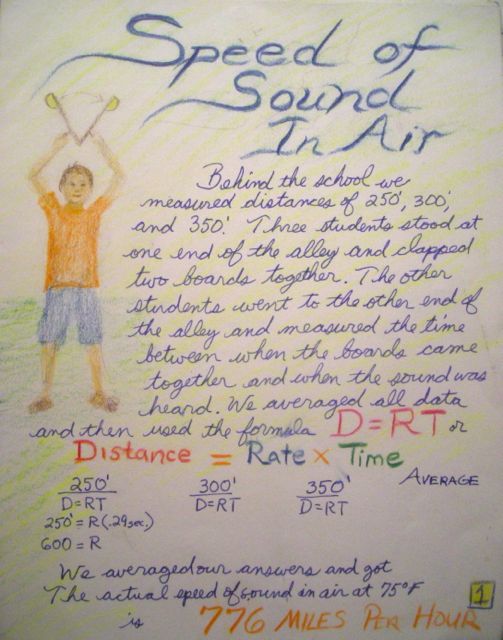 Speed of
Sound
In Air
Behind the school we
measured distances of 250', 300',
and 350'. Three students stood at
one end of the alley and clapped
two boards together. The other
students went to the other end of
the alley and measured the time
between when the boards came
together and when the sound was
heard. We averaged all data
and then used the formula D=RT or
Distance = Rate x Time
AVERAGE
250' 300' 350'
D=RT D=RT D=RT
250' = R(.29sec.)
600 = R
We averaged our answers and got
The actual speed of sound in air at 75°F
is 776 MILES PER HOUR
1